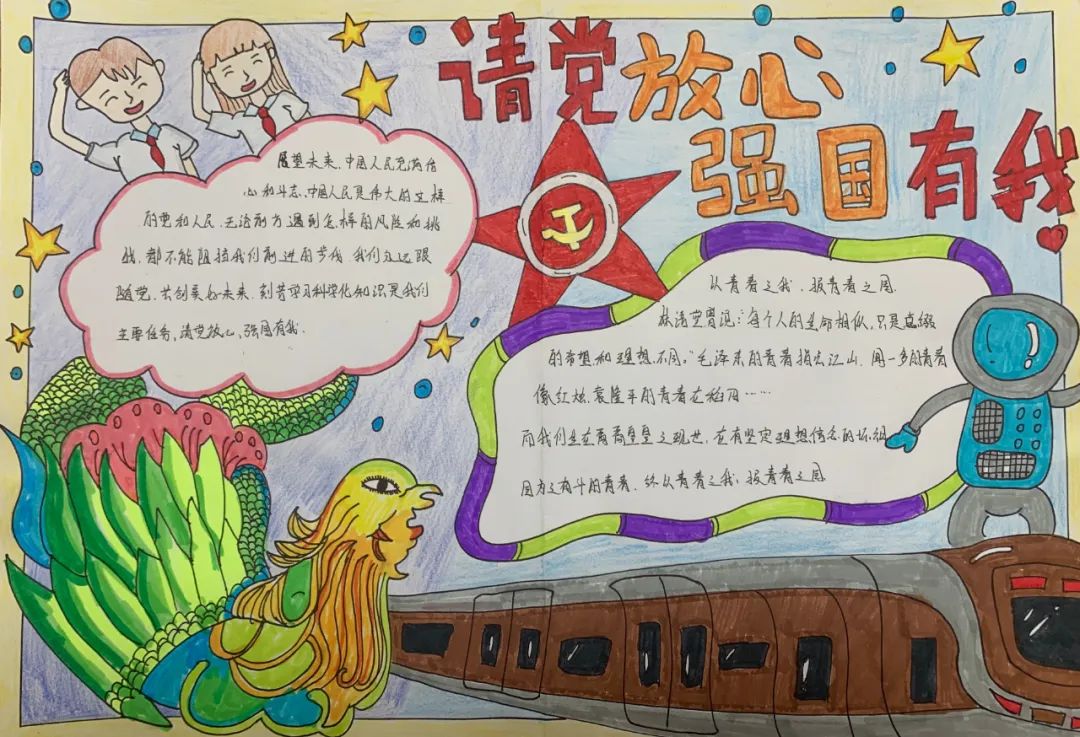 请党放心
强国有我
展望未来,中国人民充满信
心和斗志、中国人民是伟大的
的党和人民,无论前方遇到怎样的风险和挑
战,都不能阻挡我们前进的步伐,我们永远跟
随党,共创美好未来,刻苦学习科学文化知识是我们
主要任务,请党放心,强国有我.
以青春之我,报青春之国
林语堂曾说:"每个人的生命相似,只是
的希想和理想不同,"毛泽东的青春指点江山,闻一多的青春
像红烛,袁隆平的青春在稻田……
而我们生在之现世,在有坚定理想信念的
因为之有斗的青春,以青春之我,报青春之国